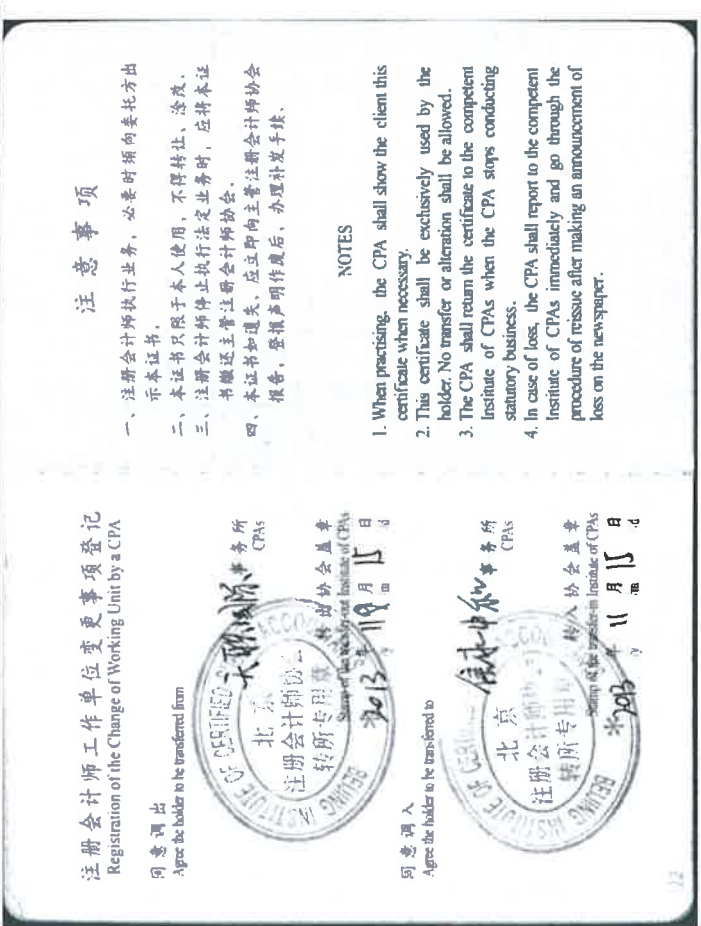 注册会计师工作单位变更事项登记
Registration of the Change of Working Unit by a CPA
同意调出
Agree the holder to be transferred from
天职国际 事务所
CPAs
转出协会盖章
Stamp of the transfer-out Institute of CPAs
2013 年 月 15 日
/y /m /d
BEIJING INSTITUTE OF CERTIFIED
北京
注册会计师协会
转所专用章
同意调入
Agree the holder to be transferred to
信永中和 事务所
CPAs
转入协会盖章
Stamp of the transfer-in Institute of CPAs
2013 年 11 月 15 日
/y /m /d
BEIJING INSTITUTE OF
北京
注册会计师协会
转所专用章
注意事项
一、注册会计师执行业务，必要时须向委托方出
示本证书。
二、本证书只限于本人使用，不得转让、涂改。
三、注册会计师停止执行法定业务时，应将本证
书缴还主管注册会计师协会。
四、本证书如遗失，应立即向主管注册会计师协会
报告，登报声明作废后，办理补发手续。
NOTES
1. When practising, the CPA shall show the client this
certificate when necessary.
2. This certificate shall be exclusively used by the
holder. No transfer or alteration shall be allowed.
3. The CPA shall return the certificate to the competent
Institute of CPAs when the CPA stops conducting
statutory business.
4. In case of loss, the CPA shall report to the competent
Institute of CPAs immediately and go through the
procedure of reissue after making an announcement of
loss on the newspaper.